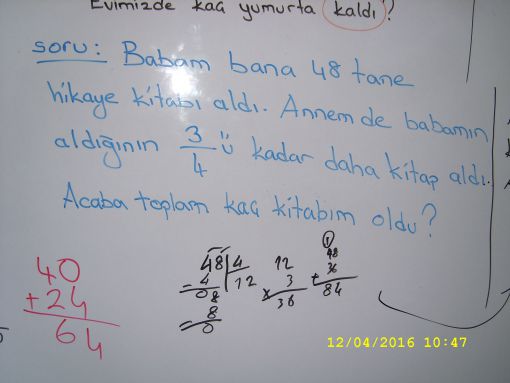 Evimizde kaç yumurta kaldı?
soru: Babam bana 48 tane
hikaye kitabı aldı. Annem de babamın
aldığının 3/4 ü kadar daha kitap aldı.
Acaba toplam kaç kitabım oldu?
40
+24
64
48 | 4
4 | 12
08
8
0
12
x 3
36
(1)
48
+ 36
84
12/04/2016 10:47